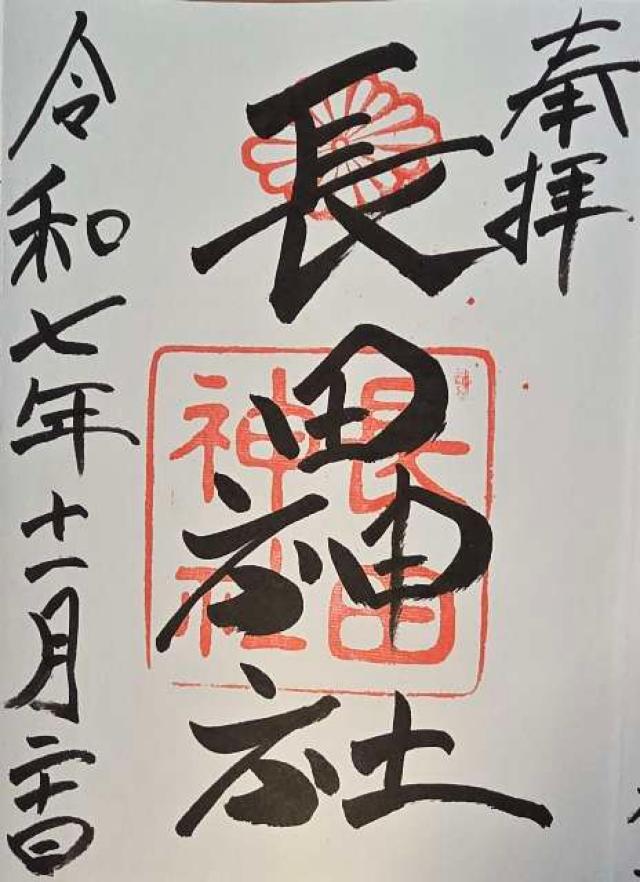 奉拝
長田神社
長田
神社
令和七年十一月二十日